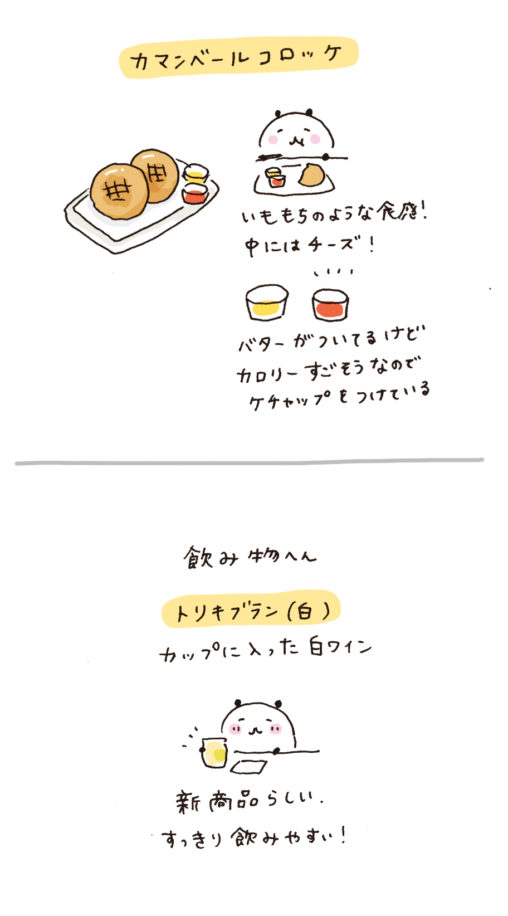 カマンベールコロッケ
いももちのような食感!
中にはチーズ!
バターがついてるけど
カロリーすごそうなので
ケチャップをつけている
飲み物へん
トリキブラン(白)
カップに入った白ワイン
新商品らしい.
すっきり飲みやすい!